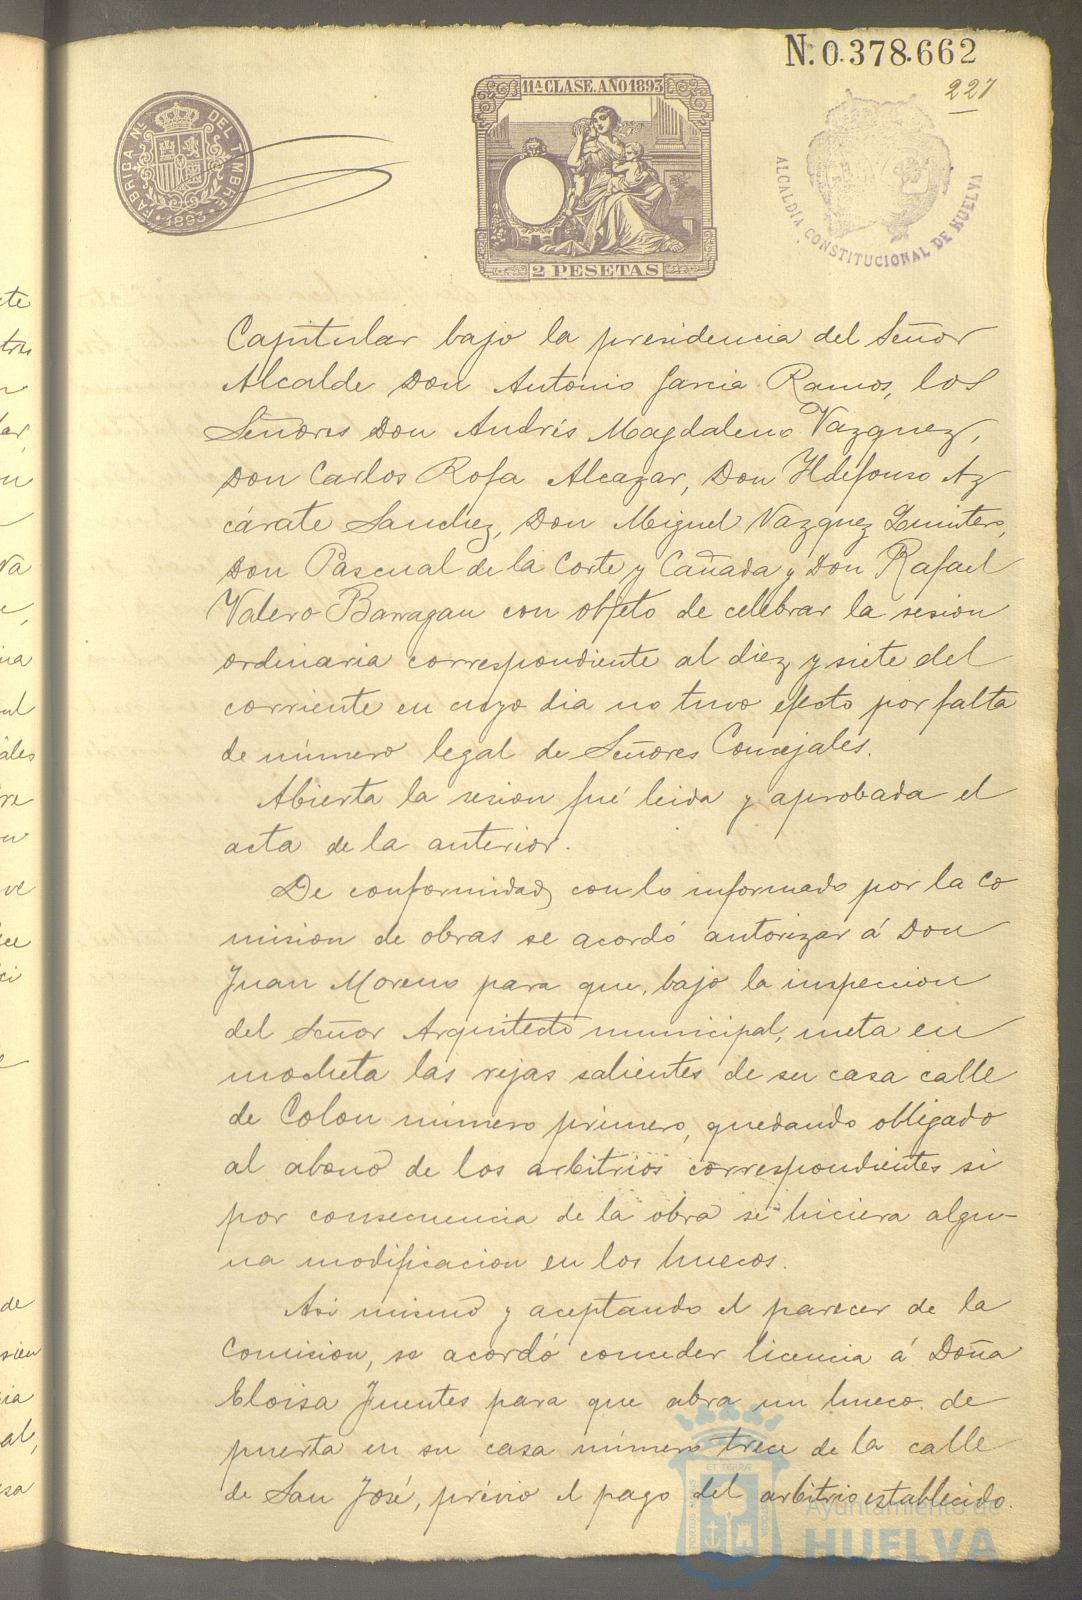 N. 0.378.662
227
FABRICA NAL. DEL TIMBRE
1893
11ª CLASE. AÑO 1893
2 PESETAS
ALCALDÍA CONSTITUCIONAL DE HUELVA
Capitular bajo la presidencia del Señor
Alcalde Don Antonio Garcia Ramos, los
Señores Don Andrés Magdaleno Vazquez,
Don Carlos Rofa Alcazar, Don Ildefonso Az
cárate Sanchez, Don Miguel Vazquez Quintero,
Don Pascual de la Corte y Cañada y Don Rafael
Valero Barragan con objeto de celebrar la sesion
ordinaria correspondiente al diez y siete del
corriente en cuyo dia no tuvo efecto por falta
de número legal de Señores Concejales.
Abierta la sesion fué leida y aprobada el
acta de la anterior.
De conformidad con lo informado por la co
mision de obras se acordó autorizar á Don
Juan Moreno para que, bajo la inspeccion
del Señor Arquitecto municipal, meta en
mocheta las rejas salientes de su casa calle
de Colon número primero, quedando obligado
al abono de los arbitrios correspondientes si
por consecuencia de la obra se hiciera algu-
na modificacion en los huecos.
Asi mismo y aceptando el parecer de la
Comision, se acordó conceder licencia á Doña
Eloisa Fuentes para que abra un hueco de
puerta en su casa número trece de la calle
de San José, prévio el pago del arbitrio establecido.
Ayuntamiento de
HUELVA